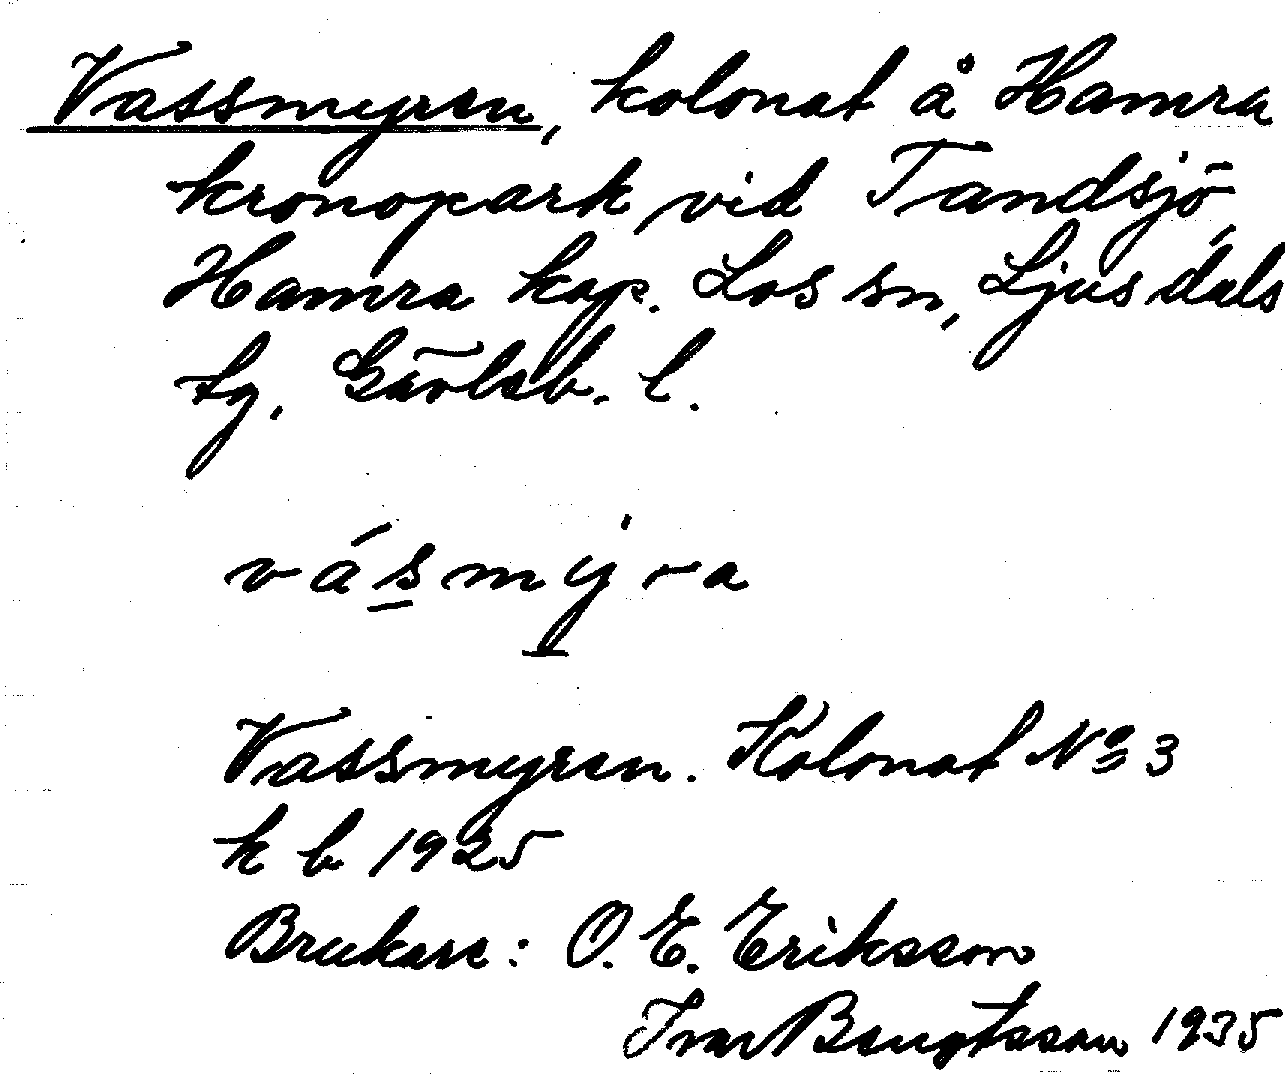 Vassmyren, kolonat å Hamra
kronopark, vid Tandsjö,
Hamra kap. Los sn, Ljusdals
tg, Gävleb. l.
vásmyra
Vassmyren. Kolonat No 3
k b 1925
Brukare: O. E. Eriksson
Ivar Bengtsson 1935